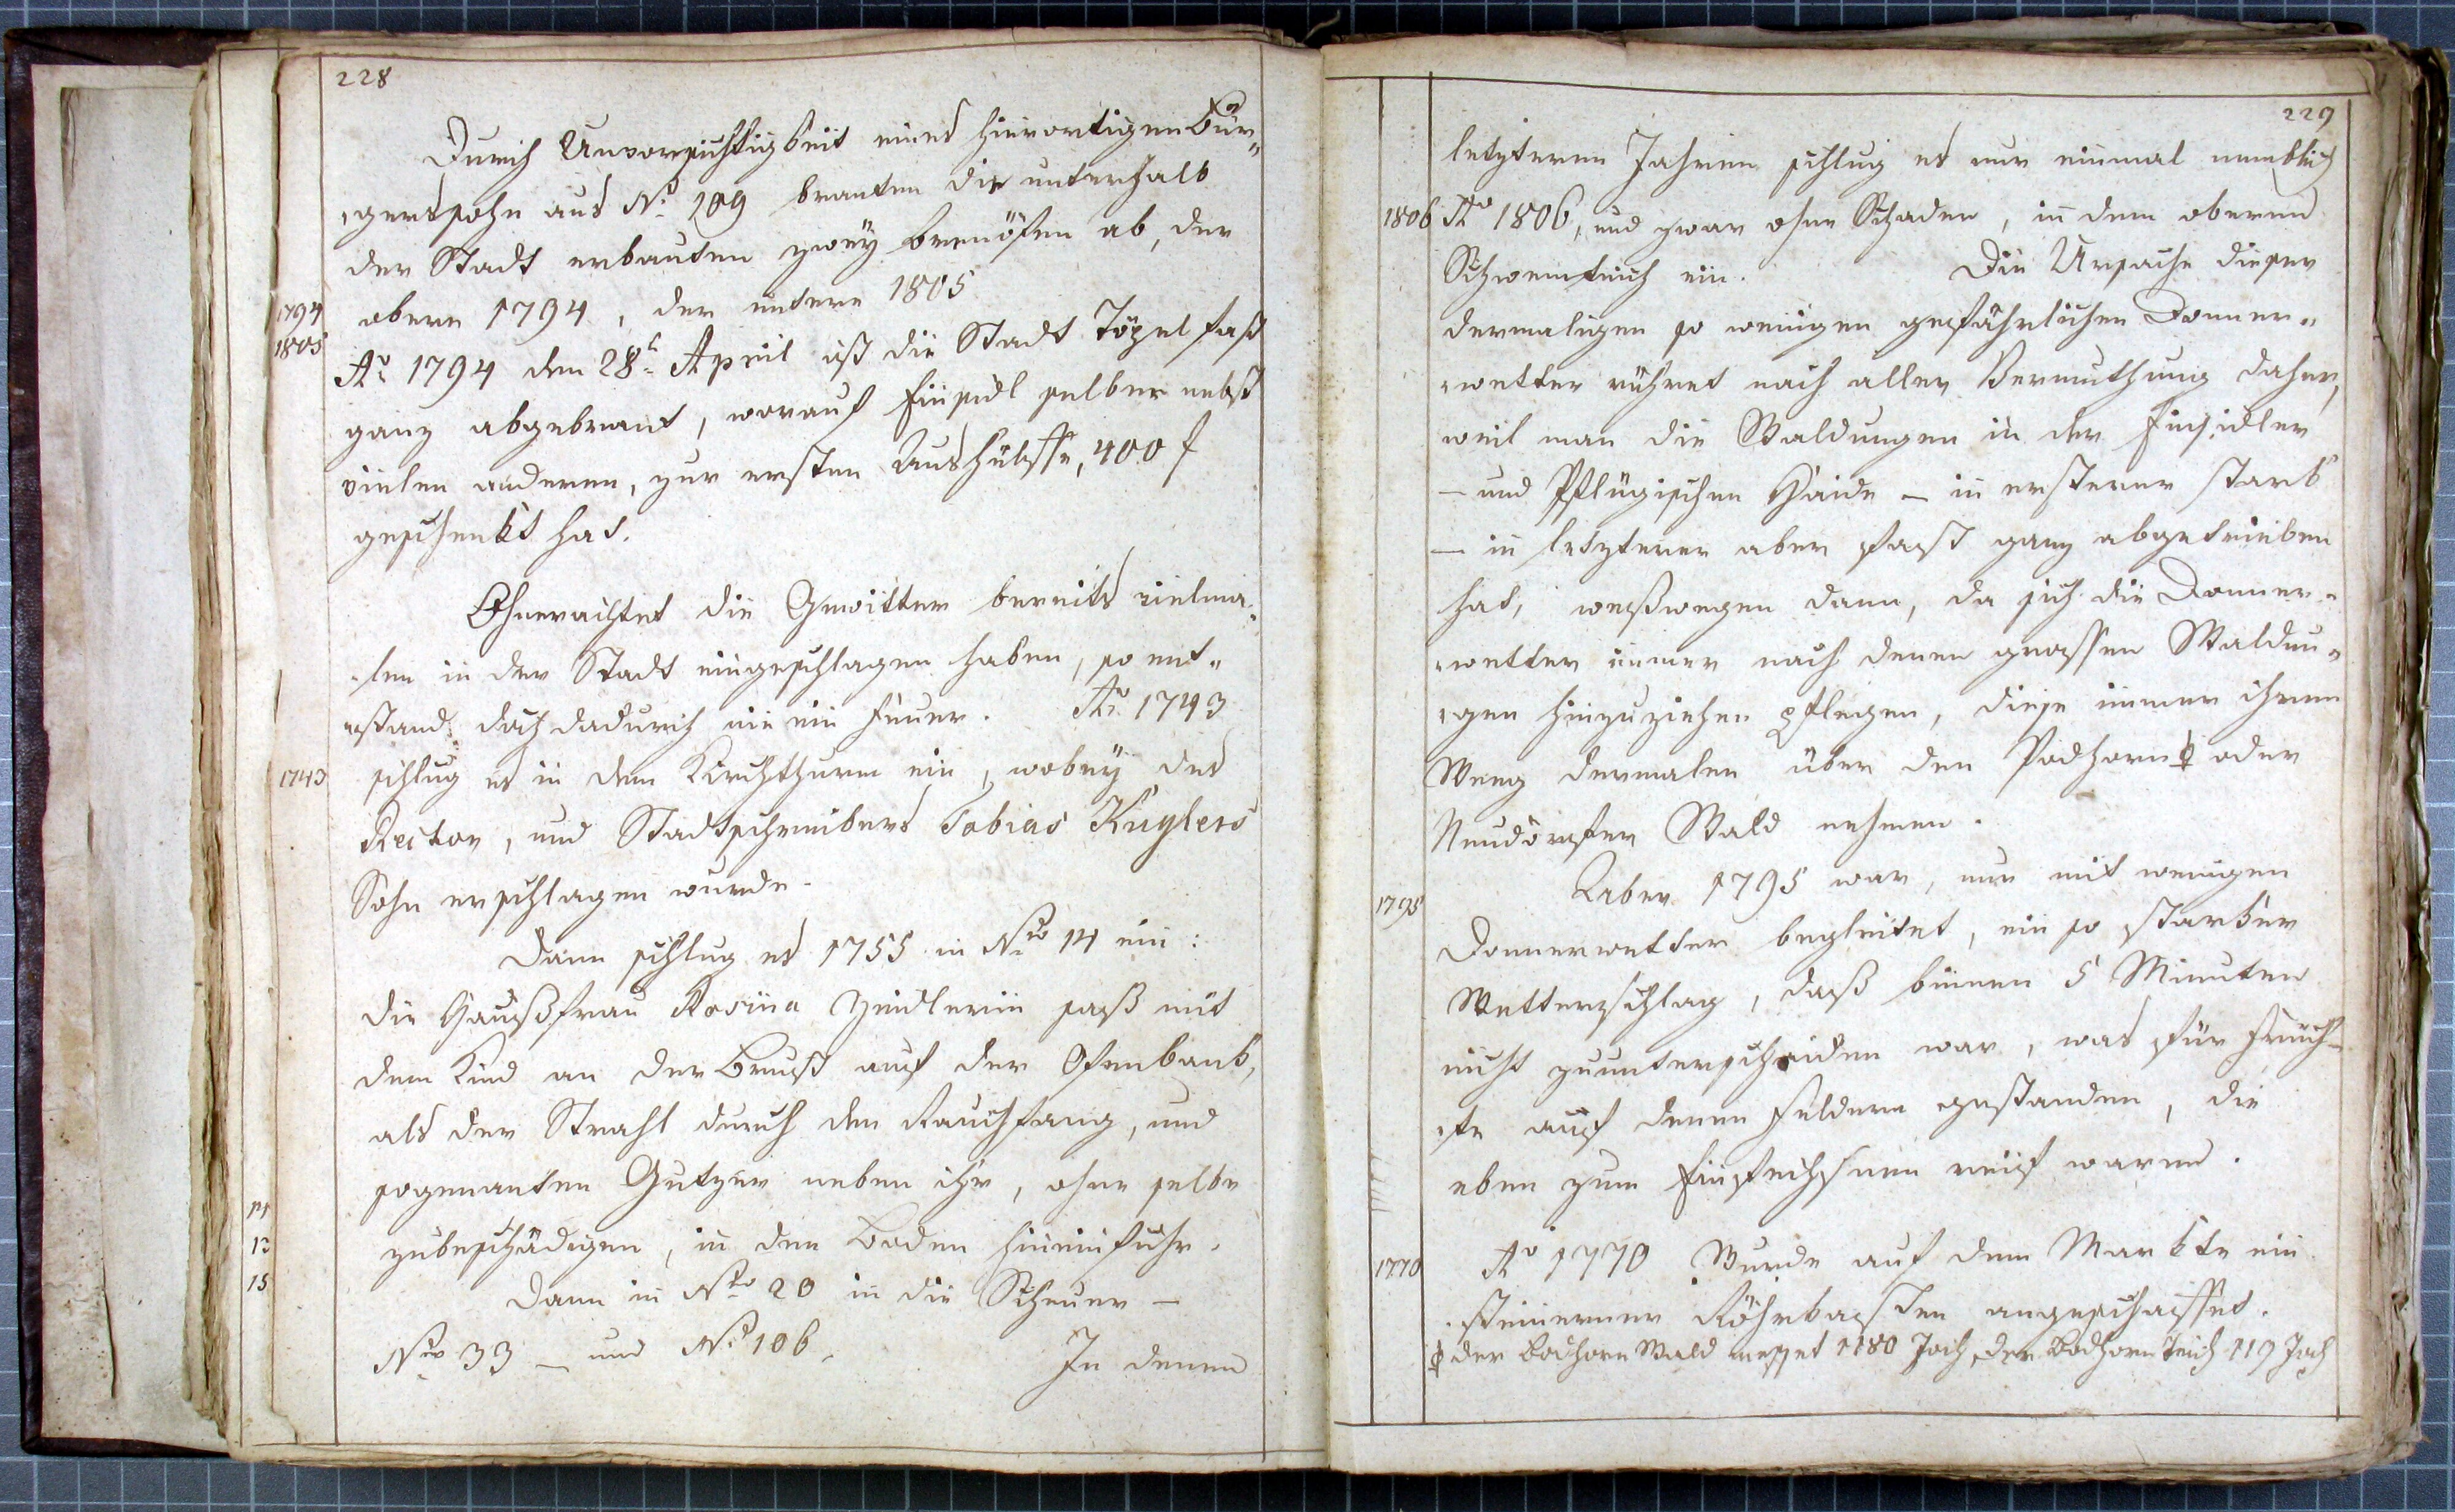 228
Durch Unvorsichtigkeit eines hierortigen Bür„
„gerssohn aus No 109 branten die unterhalb
der Stadt erbauten zwey Brenöfen ab, der
obere 1794, der untere 1805
1794
1805
Ao 1794 den 28t April ist die Stadt Töpel fast
ganz abgebrant, worauf Einsidl selber nebst
vielen anderen, zur ersten Aushülffe, 400 f
geschenkt hat.
Ohnerachtet die Gewitter bereits vielma„
„len in der Stadt eingeschlagen haben, so ent„
„stand doch dadurch nie ein Feuer. Ao 1743
1743
schlug es in dem Kirchthurm ein, wobey des
Rector, und Stadtschreibers Tobias Kuglers
Sohn erschlagen wurde.
Dann schlug es 1755 in Nro 14 ein:
die Haußfrau Rosina Zeidlerin saß mit
dem Kind an der Brust auf der Ofenbank,
als der Strahl durch den Rauchfang, und
sogenanten Gutzer neben ihr, ohne selbe
14
zubeschädigen, in den Boden hineinfuhr.
12
15
Dann in Nro 20 in die Scheuer —
Nro 33 — und No 106. In denen
229
letzteren Jahren schlug es nur einmal nemblich
1806
Ao 1806, und zwar ohne Schaden, in dem oberen
Schwemteich ein. Die Ursache dieser
dermaligen so wenigen gefährlichen Donner„
„wetter rühret nach aller Vermuthung daher,
weil man die Waldungen in der Einsidler
— und Pflügischen Haide — in ersterer stark
— in letzterer aber fast ganz abgetrieben
hat, weßwegen dann, da sich die Donner„
„wetter immer nach denen grossen Waldun„
„gen hinzuziehen pflegen, diese immer ihren
Weeg dermalen über den Podhorn ϕ oder
Neudorfer Wald nehmen.
1795
Aber 1795 war, nur mit wenigen
Donnerwetter begleitet, ein so starker
Wetterschlag, daß binnen 5 Minuten
nicht zuunterscheiden war, was für Früch„
„te auf denen Feldern gestanden, die
eben zum Einfechsnen reif waren.
1770
Ao 1770 Wurde auf dem Markte ein
steinerner Röhrkasten angeschaffet.
ϕ der Bodhorn Wald messet 1180 Joch, der Bodhorn Teich 119 Joch